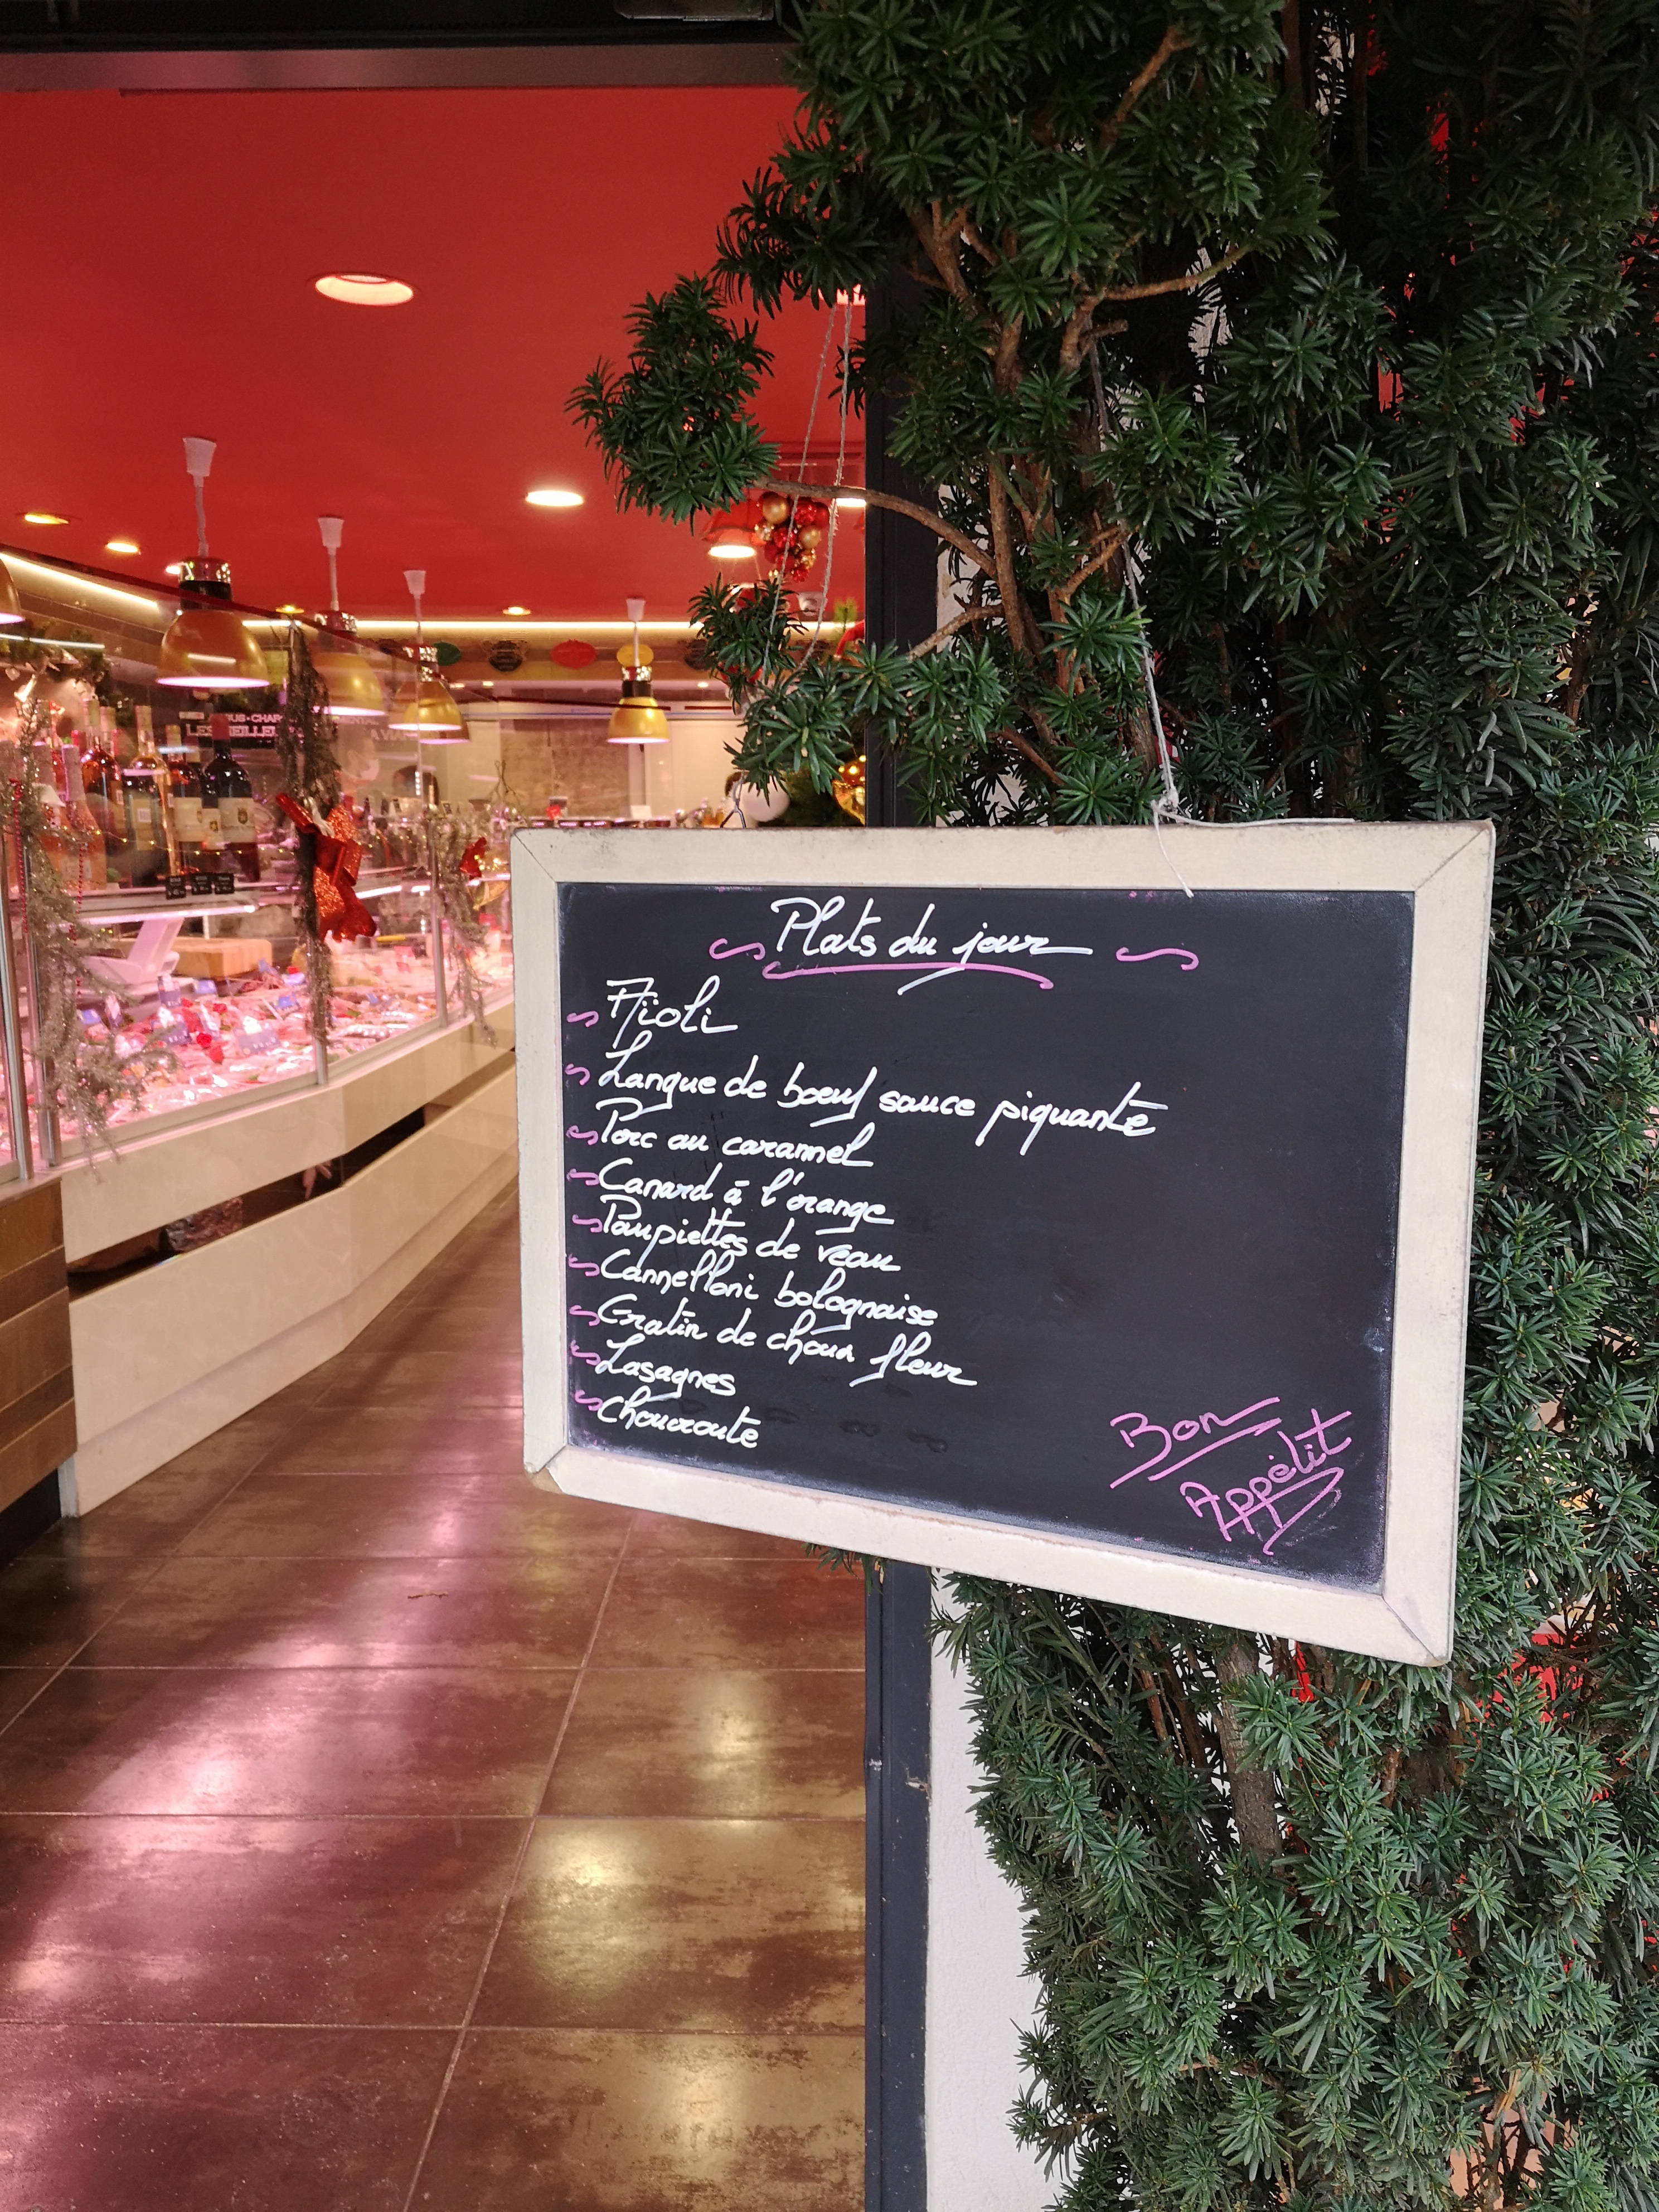 Plats du jour
Aïoli
Langue de boeuf sauce piquante
Porc au caramel
Canard à l'orange
Paupiettes de veau
Cannelloni bolognaise
Gratin de choux fleur
Lasagnes
Choucroute
Bon
Appétit